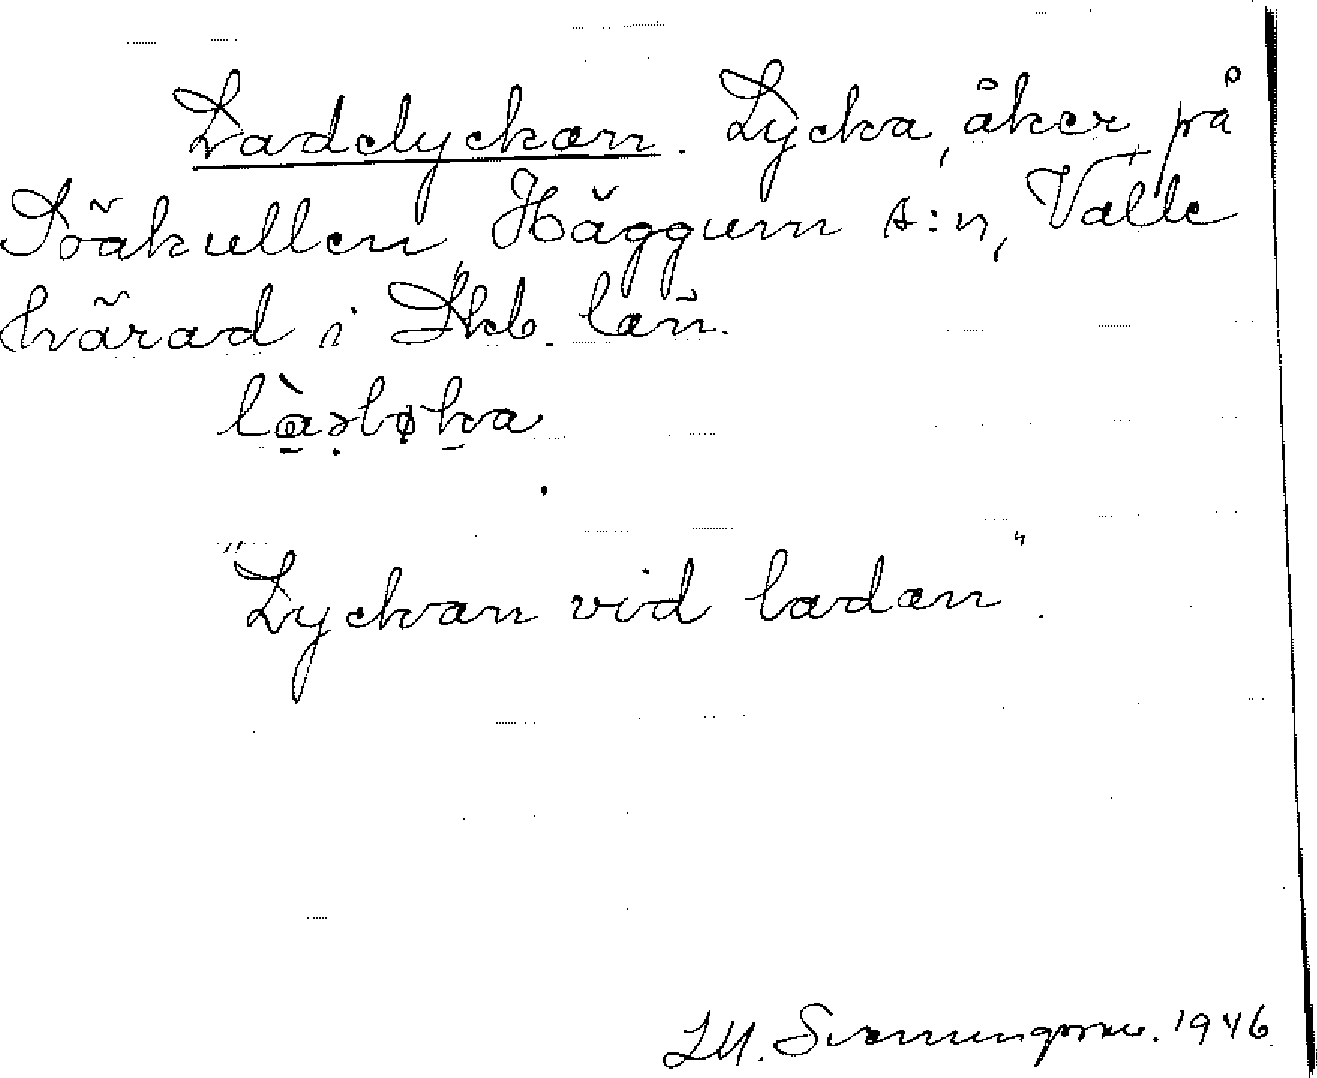 Ladelyckan. Lycka, åker på
Soäkullen, Häggum s:n, Valle
härad i Skb. län.
"Lyckan vid ladan".
S. M. Svenningsson. 1946